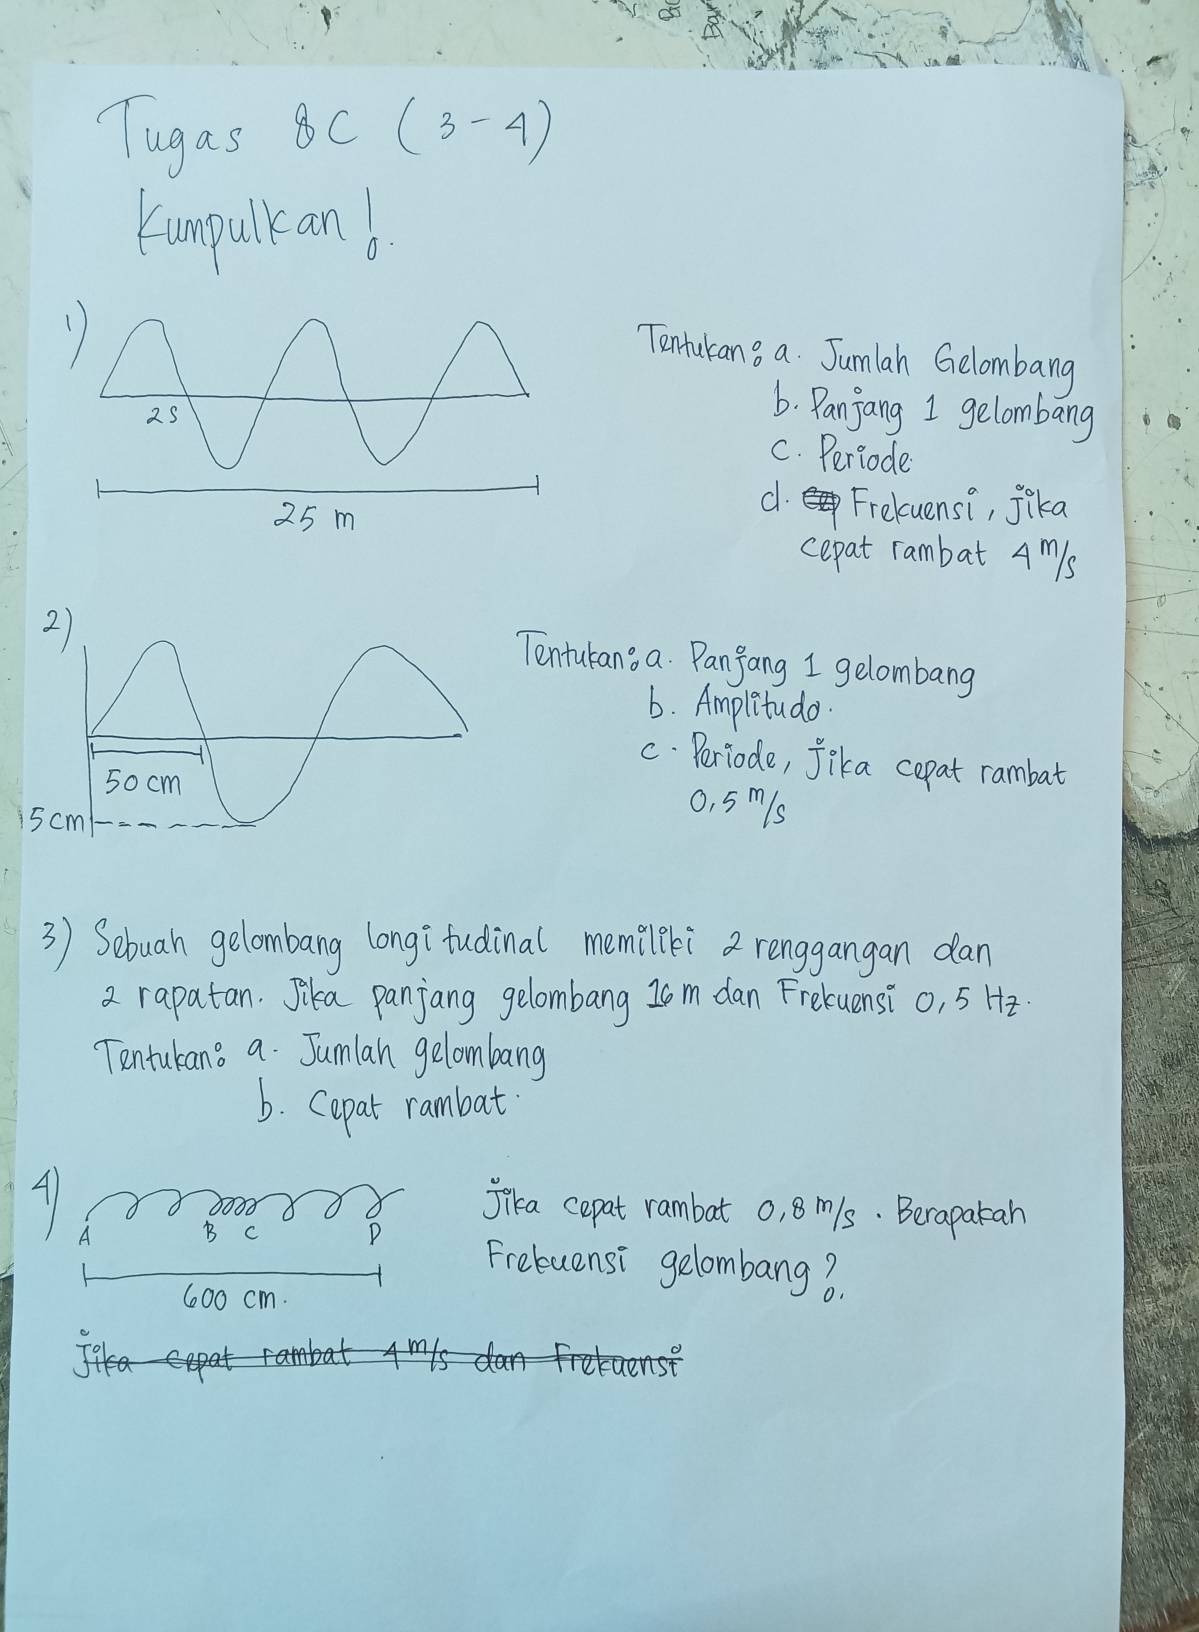 Tugas 8C (3-4)
Kumpulkan!
1)
2s
25 m
Tentukan: a. Jumlah Gelombang
b. Panjang 1 gelombang
c. Periode
d. Frekuensi, jika
cepat rambat 4 m/s
2)
50 cm
5 cm
Tentukan: a. Panjang 1 gelombang
b. Amplitudo.
c. Periode, jika cepat rambat
0,5 m/s
3) Sebuah gelombang longitudinal memiliki 2 renggangan dan
2 rapatan. Jika panjang gelombang 16 m dan Frekuensi 0,5 Hz.
Tentukan: a. Jumlah gelombang
b. Cepat rambat.
4)
A B C D
600 cm.
Jika cepat rambat 0,8 m/s. Berapakah
Frekuensi gelombang?
Jika cepat rambat 4 m/s dan Frekuensi